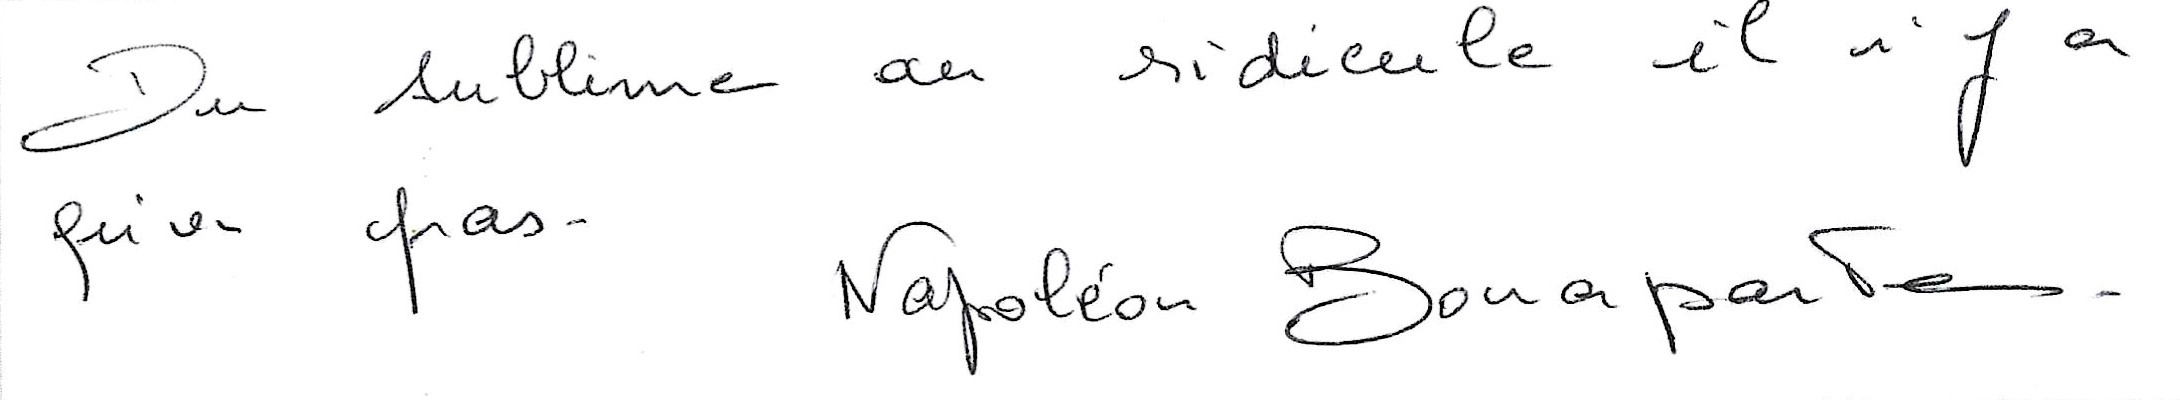 Du sublime au ridicule il n'y a
qu'un pas.
Napoléon Bonaparte.